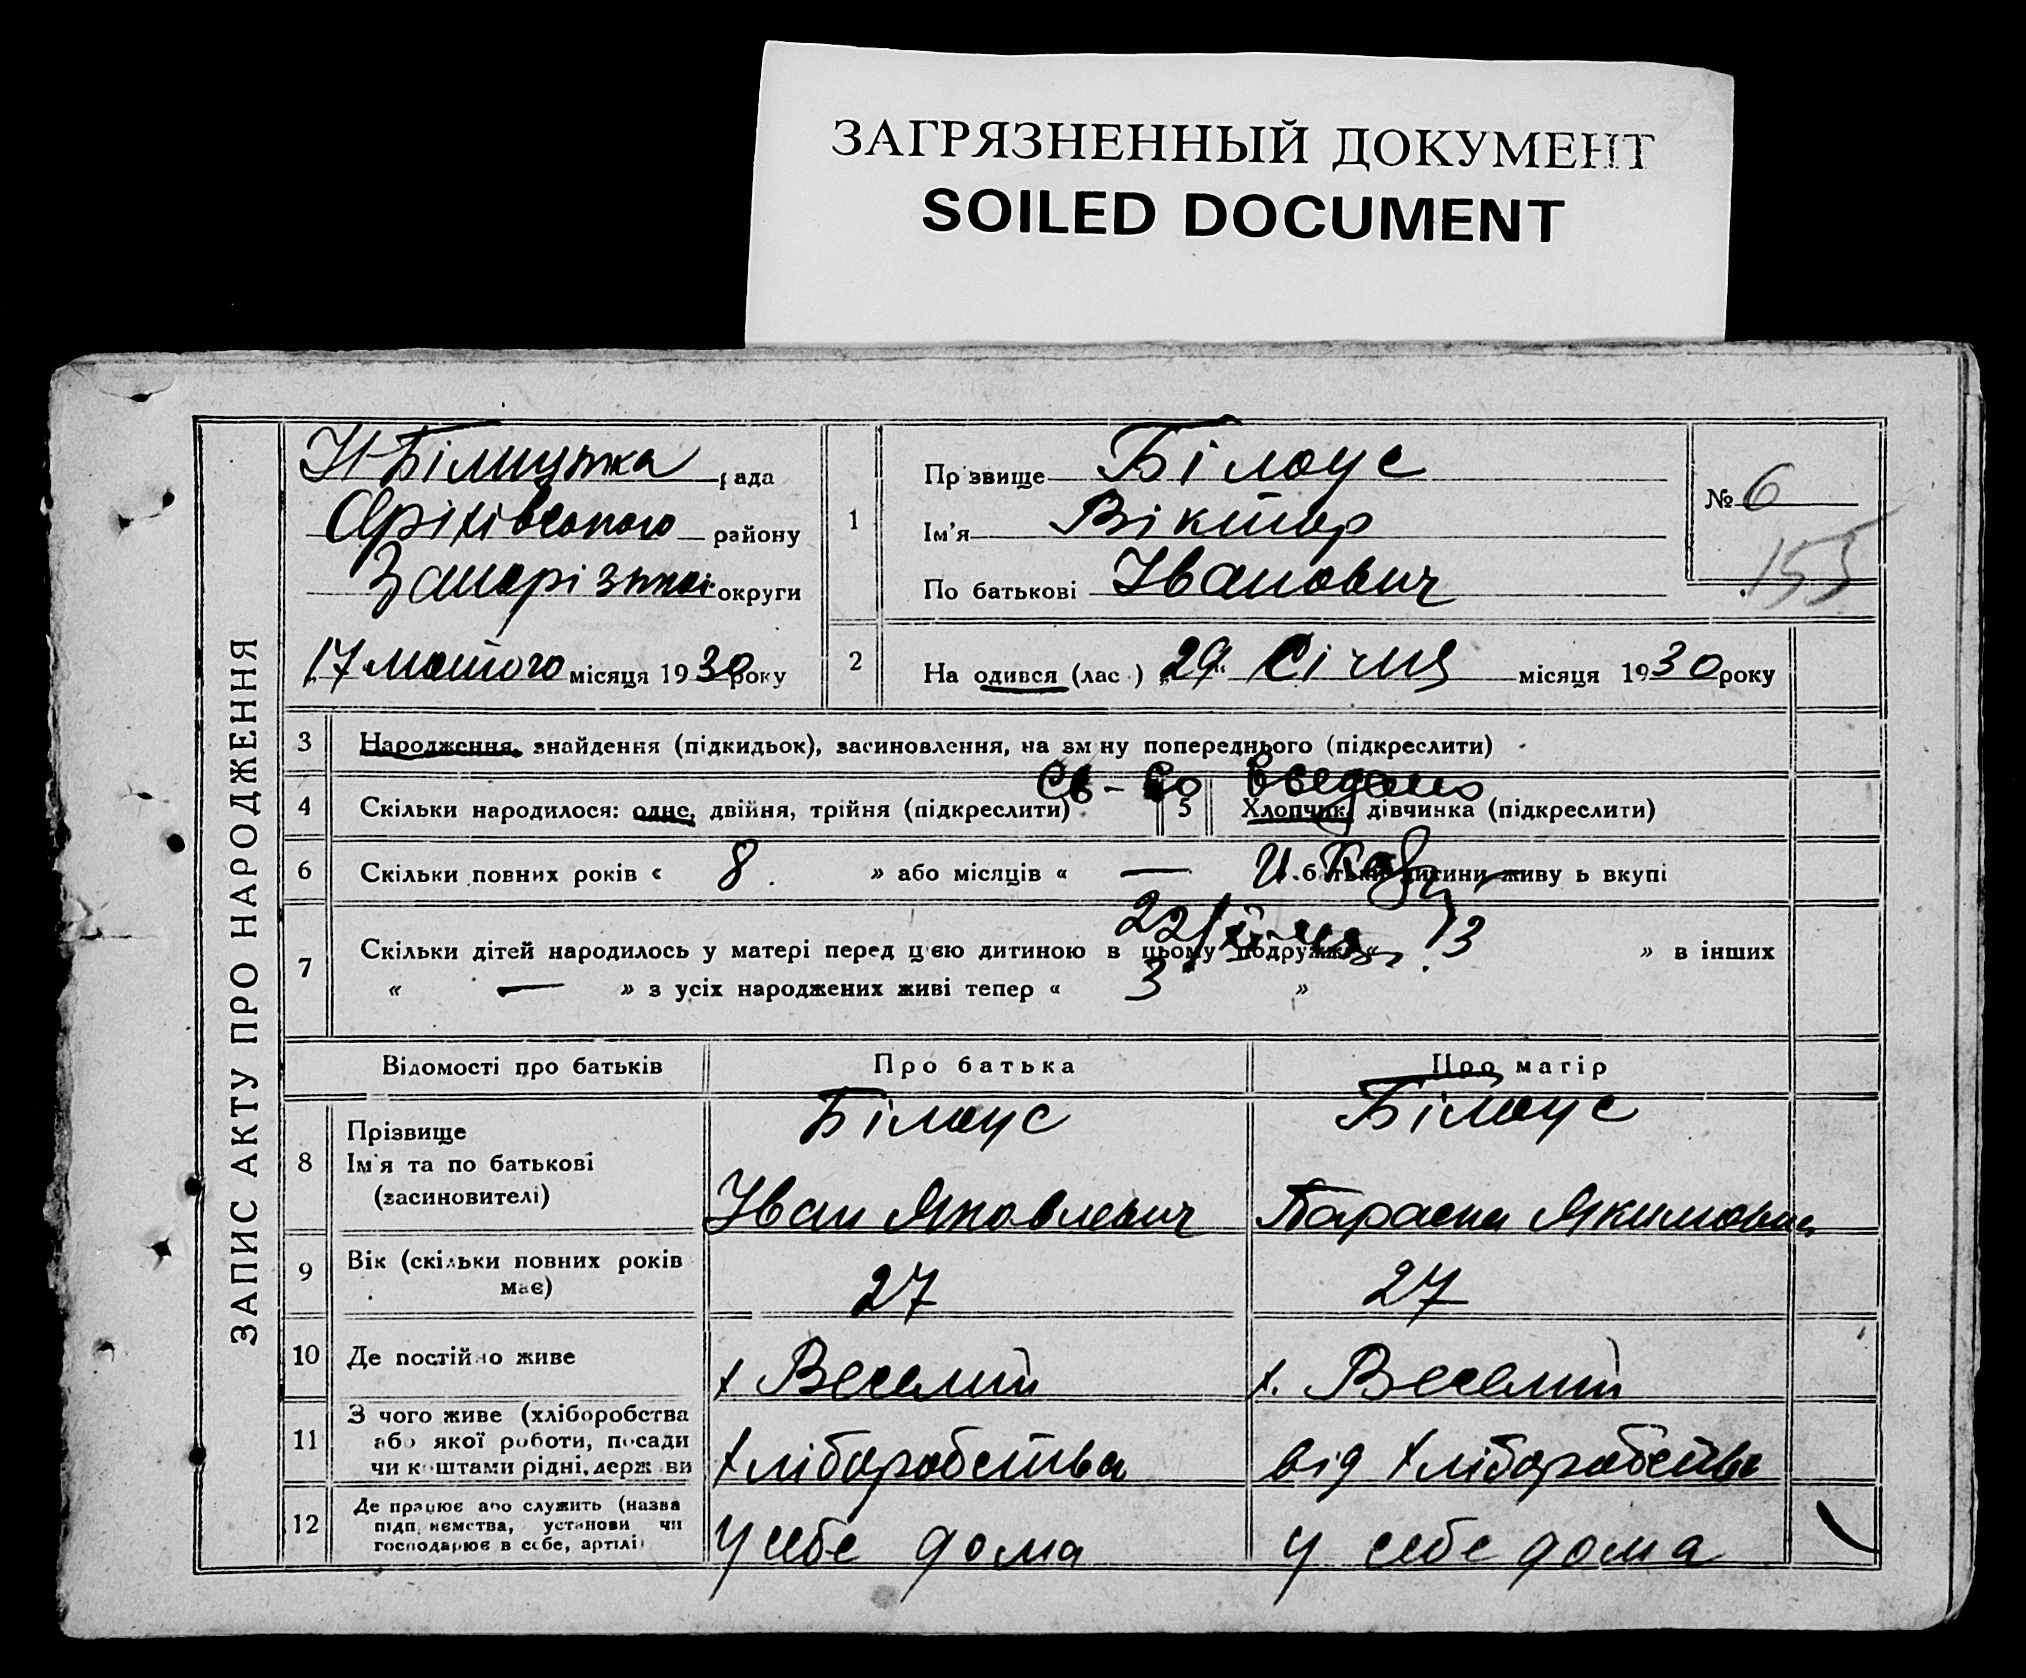 ЗАГРЯЗНЕННЫЙ ДОКУМЕНТ
SOILED DOCUMENT
ЗАПИС АКТУ ПРО НАРОДЖЕННЯ
рада
Оріхівського району
Запорізької округи
17 лютого місяця 1930 року
1
Прізвище Білоус
Ім'я Віктор
По батькові Іванович
№ 6
155
2
Народився (лась) „29“ Січня місяця 1930 року
3 Народження, знайдення (підкидьок), засиновлення, на зміну попереднього (підкреслити)
4 Скільки народилося: одне, двійня, трійня (підкреслити)
5 Хлопчик, дівчинка (підкреслити)
Св-во
6 Скільки повних років « 8 » або місяців « — » батьки дитини живуть вкупі
7 Скільки дітей народилось у матері перед цією дитиною в цьому подружжі « 3 » в інших
« — » з усіх народжених живі тепер « 3 »
Відомості про батьків
Про батька
Про матір
8 Прізвище
Ім'я та по батькові
(засиновителі)
Білоус
Іван Яковлевич
Білоус
Параска Якимовна
9 Вік (скільки повних років має)
27
27
10 Де постійно живе
х Веселий
х. Веселий
11 З чого живе (хліборобства
або якої роботи, посади
чи коштами рідні, держави
хліборобства
від хліборобства
12 Де працює або служить (назва
підприємства, установи чи
господарює в себе, артілі)
у себе дома
у себе дома